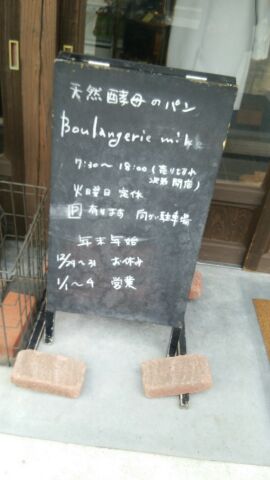 天然酵母のパン
Boulangerie mikk
7:30〜18:00(売りきれ
次第 閉店)
火曜日 定休
P 有ります 向かい駐車場
年末年始
12/29〜31 お休み
1/1〜4 営業